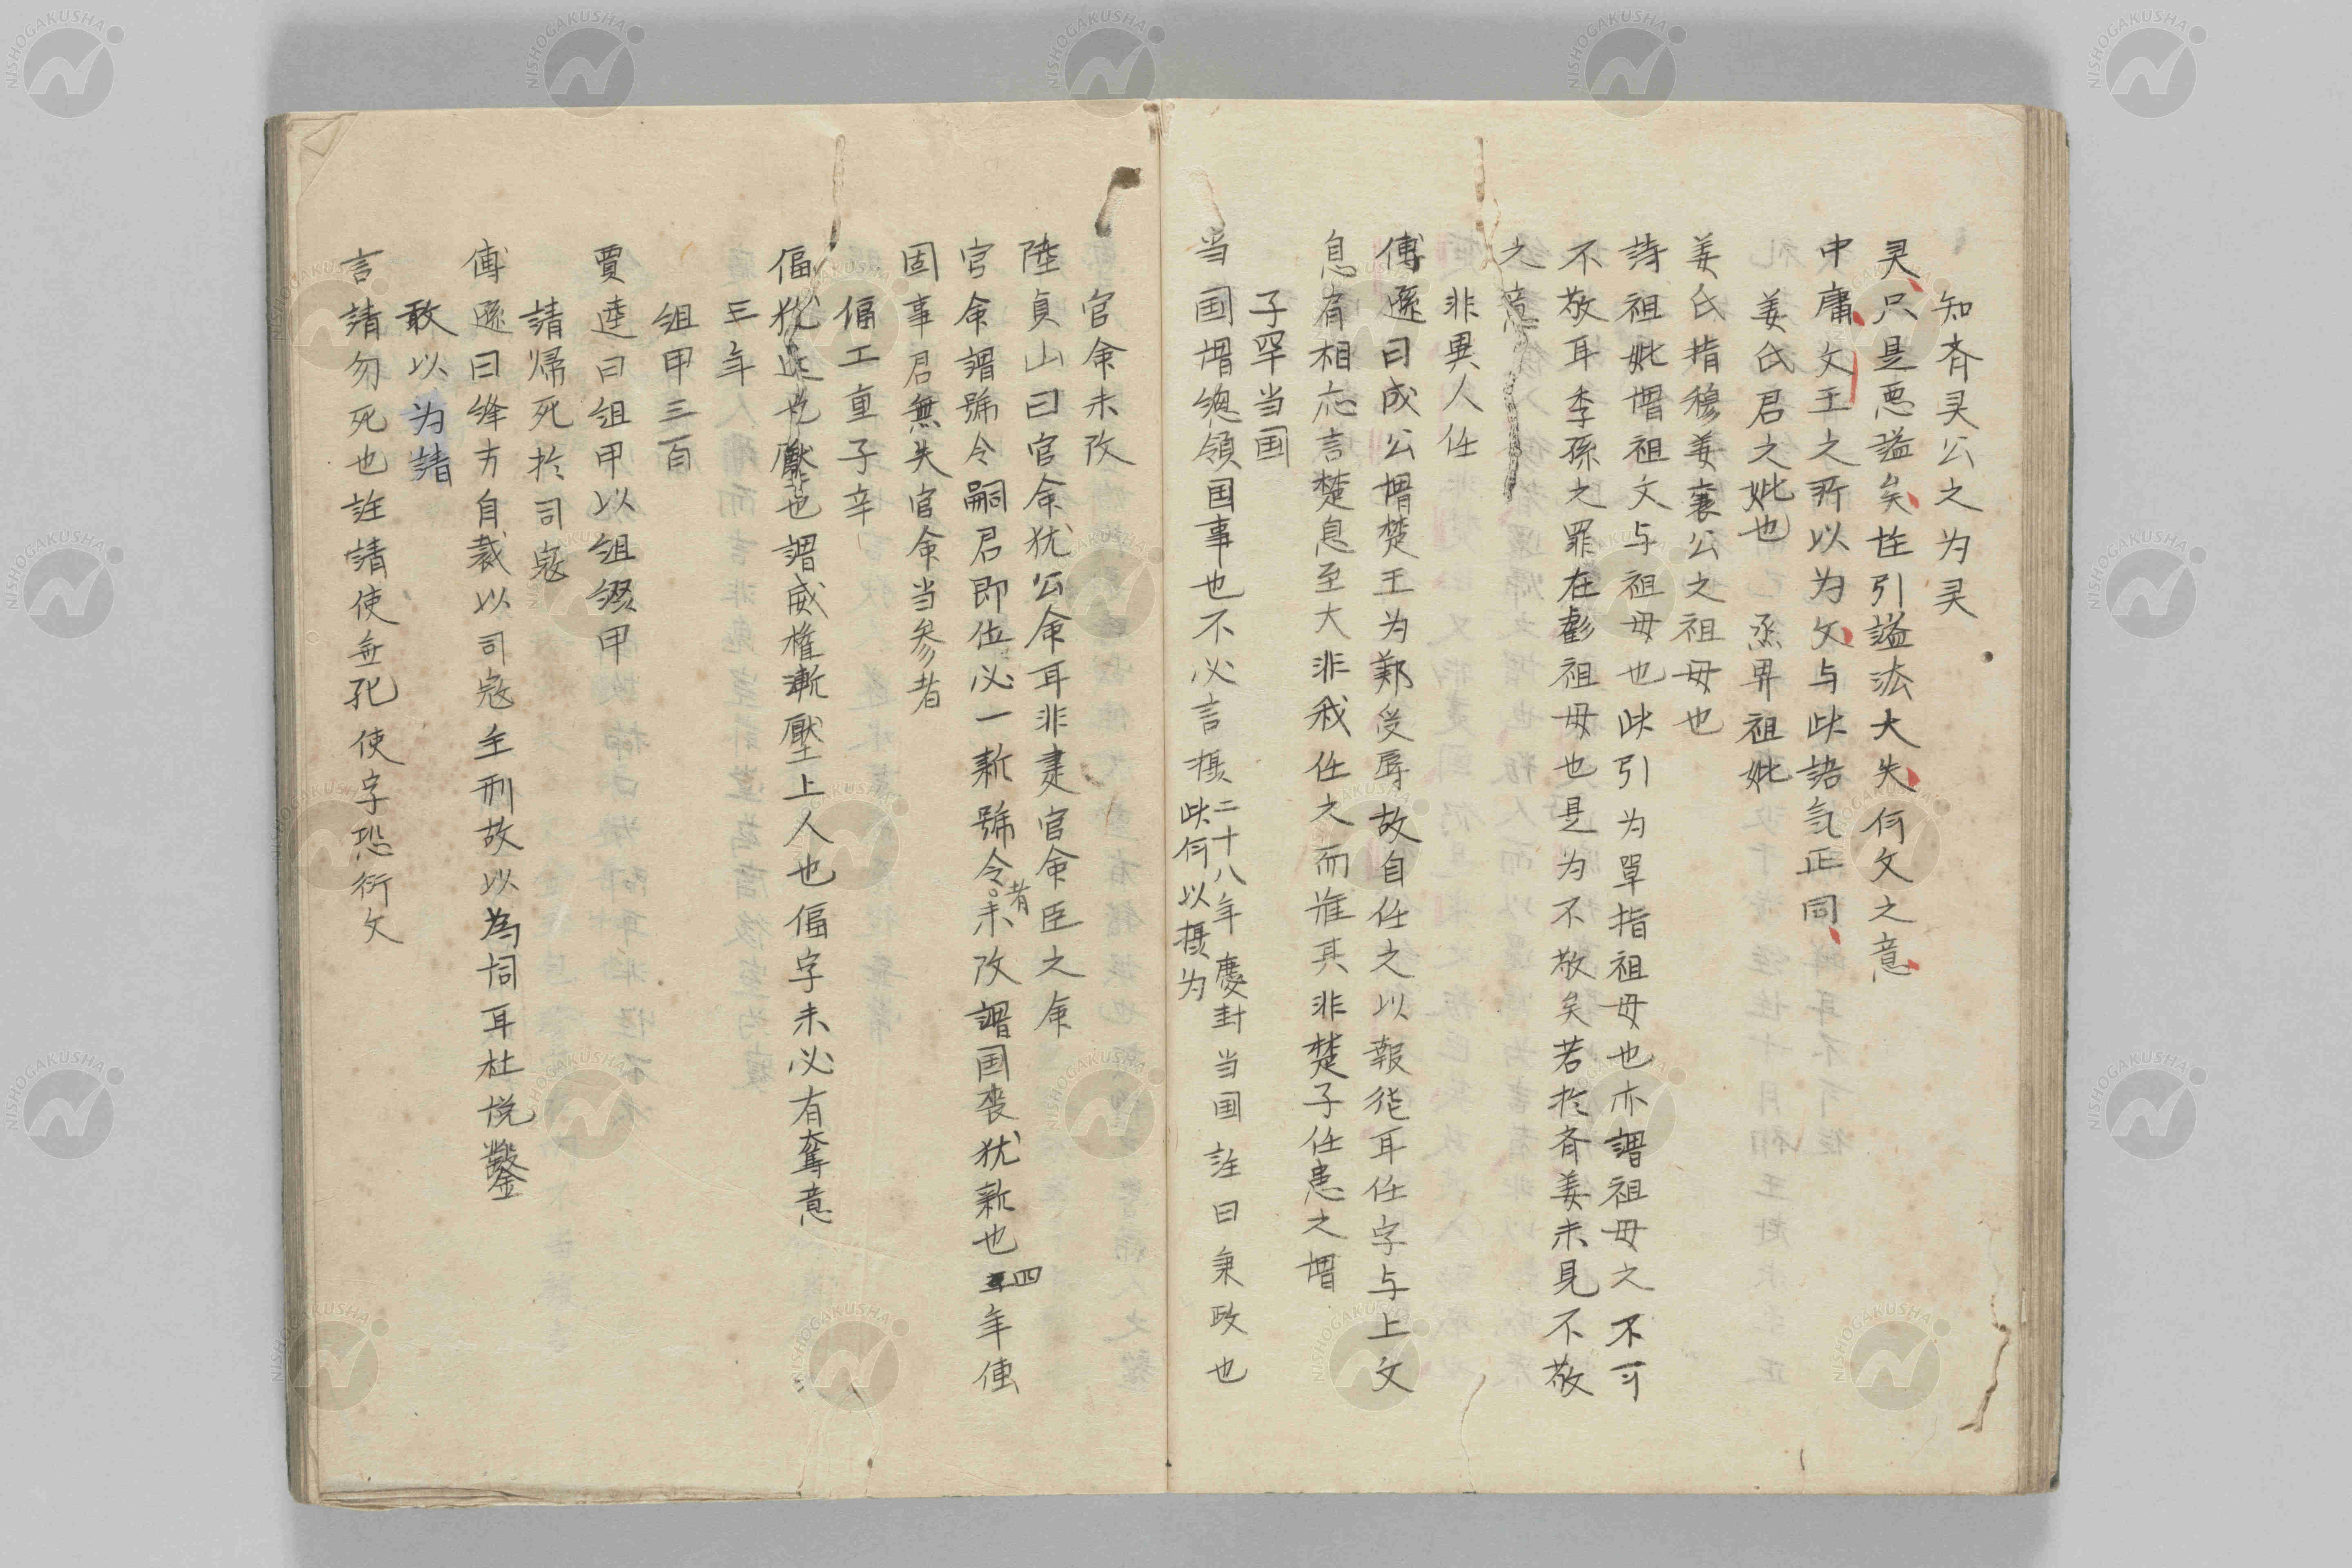 知斉灵公之为灵
灵只是悪謚矣註引謚法大失何文之意
中庸文王之所以为文与此語気正同
姜氏君之妣也 烝畀祖妣
姜氏指穆姜襄公之祖母也
詩祖妣謂祖文与祖母也此引为単指祖母也亦謂祖母之不可
不敬耳季孫之罪在虧祖母也是为不敬矣若於斉姜未見不敬
之意
非異人任
傅遜曰成公謂楚王为鄭受辱故自任之以報徳耳任字与上文
息肩相応言楚息至大非我任之而誰其非楚子任患之謂
子罕当国
当国謂総領国事也不必言摂二十八年慶封当国註曰秉政也
此何以摂为
官命未改
陸貞山曰官命犹公命耳非建官命臣之命
官命謂號令嗣君即位必一新號令者未改謂国喪犹新也四年伝
固事君無失官命当参看
偪工重子辛
偪犹迫也壓也謂威権漸壓上人也偪字未必有奪意
三年
組甲三百
賈逵曰組甲以組綴甲
請帰死於司寇
傅遜曰絳方自裁以司寇主刑故以為詞耳杜悦鑿
敢以为請
言請勿死也註請使無死使字恐衍文
NISHOGAKUSHA